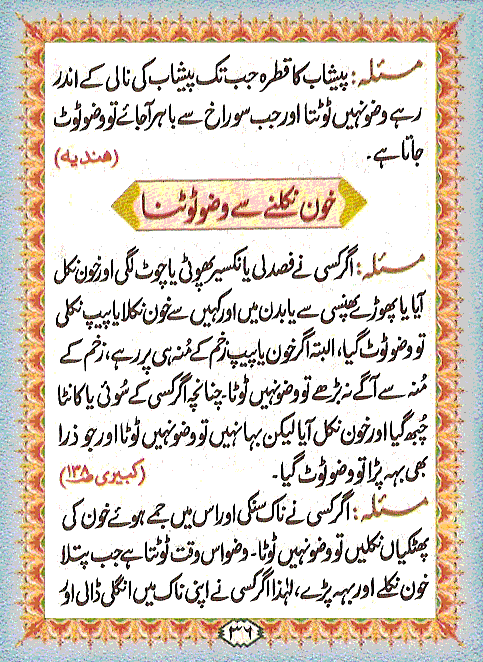 مسئلہ: پیشاب کا قطرہ جب تک پیشاب کی نالی کے اندر
رہے وضو نہیں ٹوٹتا اور جب سوراخ سے باہر آجائے تو وضو ٹوٹ
جاتا ہے۔ (ھندیہ)
خون نکلنے سے وضو ٹوٹنا
مسئلہ: اگر کسی نے فصد لی یا نکسیر پھوٹی یا چوٹ لگی اور خون نکل
آیا یا پھوڑے پھنسی سے یا بدن میں اور کہیں سے خون نکلا یا پیپ نکلی
تو وضو ٹوٹ گیا، البتہ اگر خون یا پیپ زخم کے منہ ہی پر رہے، زخم کے
مُنہ سے آگے نہ بڑھے تو وضو نہیں ٹوٹا۔ چنانچہ اگر کسی کے سُوئی یا کانٹا
چُبھ گیا اور خون نکل آیا لیکن بہا نہیں تو وضو نہیں ٹوٹا اور جو ذرا
بھی بہہ پڑا تو وضو ٹوٹ گیا۔ (کبیری صـ۱۳۸)
مسئلہ: اگر کسی نے ناک سنکی اور اس میں جمے ہوئے خون کی
پھٹکیاں نکلیں تو وضو نہیں ٹوٹا۔ وضو اس وقت ٹوٹتا ہے جب پتلا
خون نکلے اور بہہ پڑے، لہٰذا اگر کسی نے اپنی ناک میں انگلی ڈالی اور
۳۶